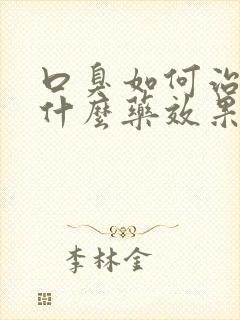 口臭如何治
什麼藥效果
李林金